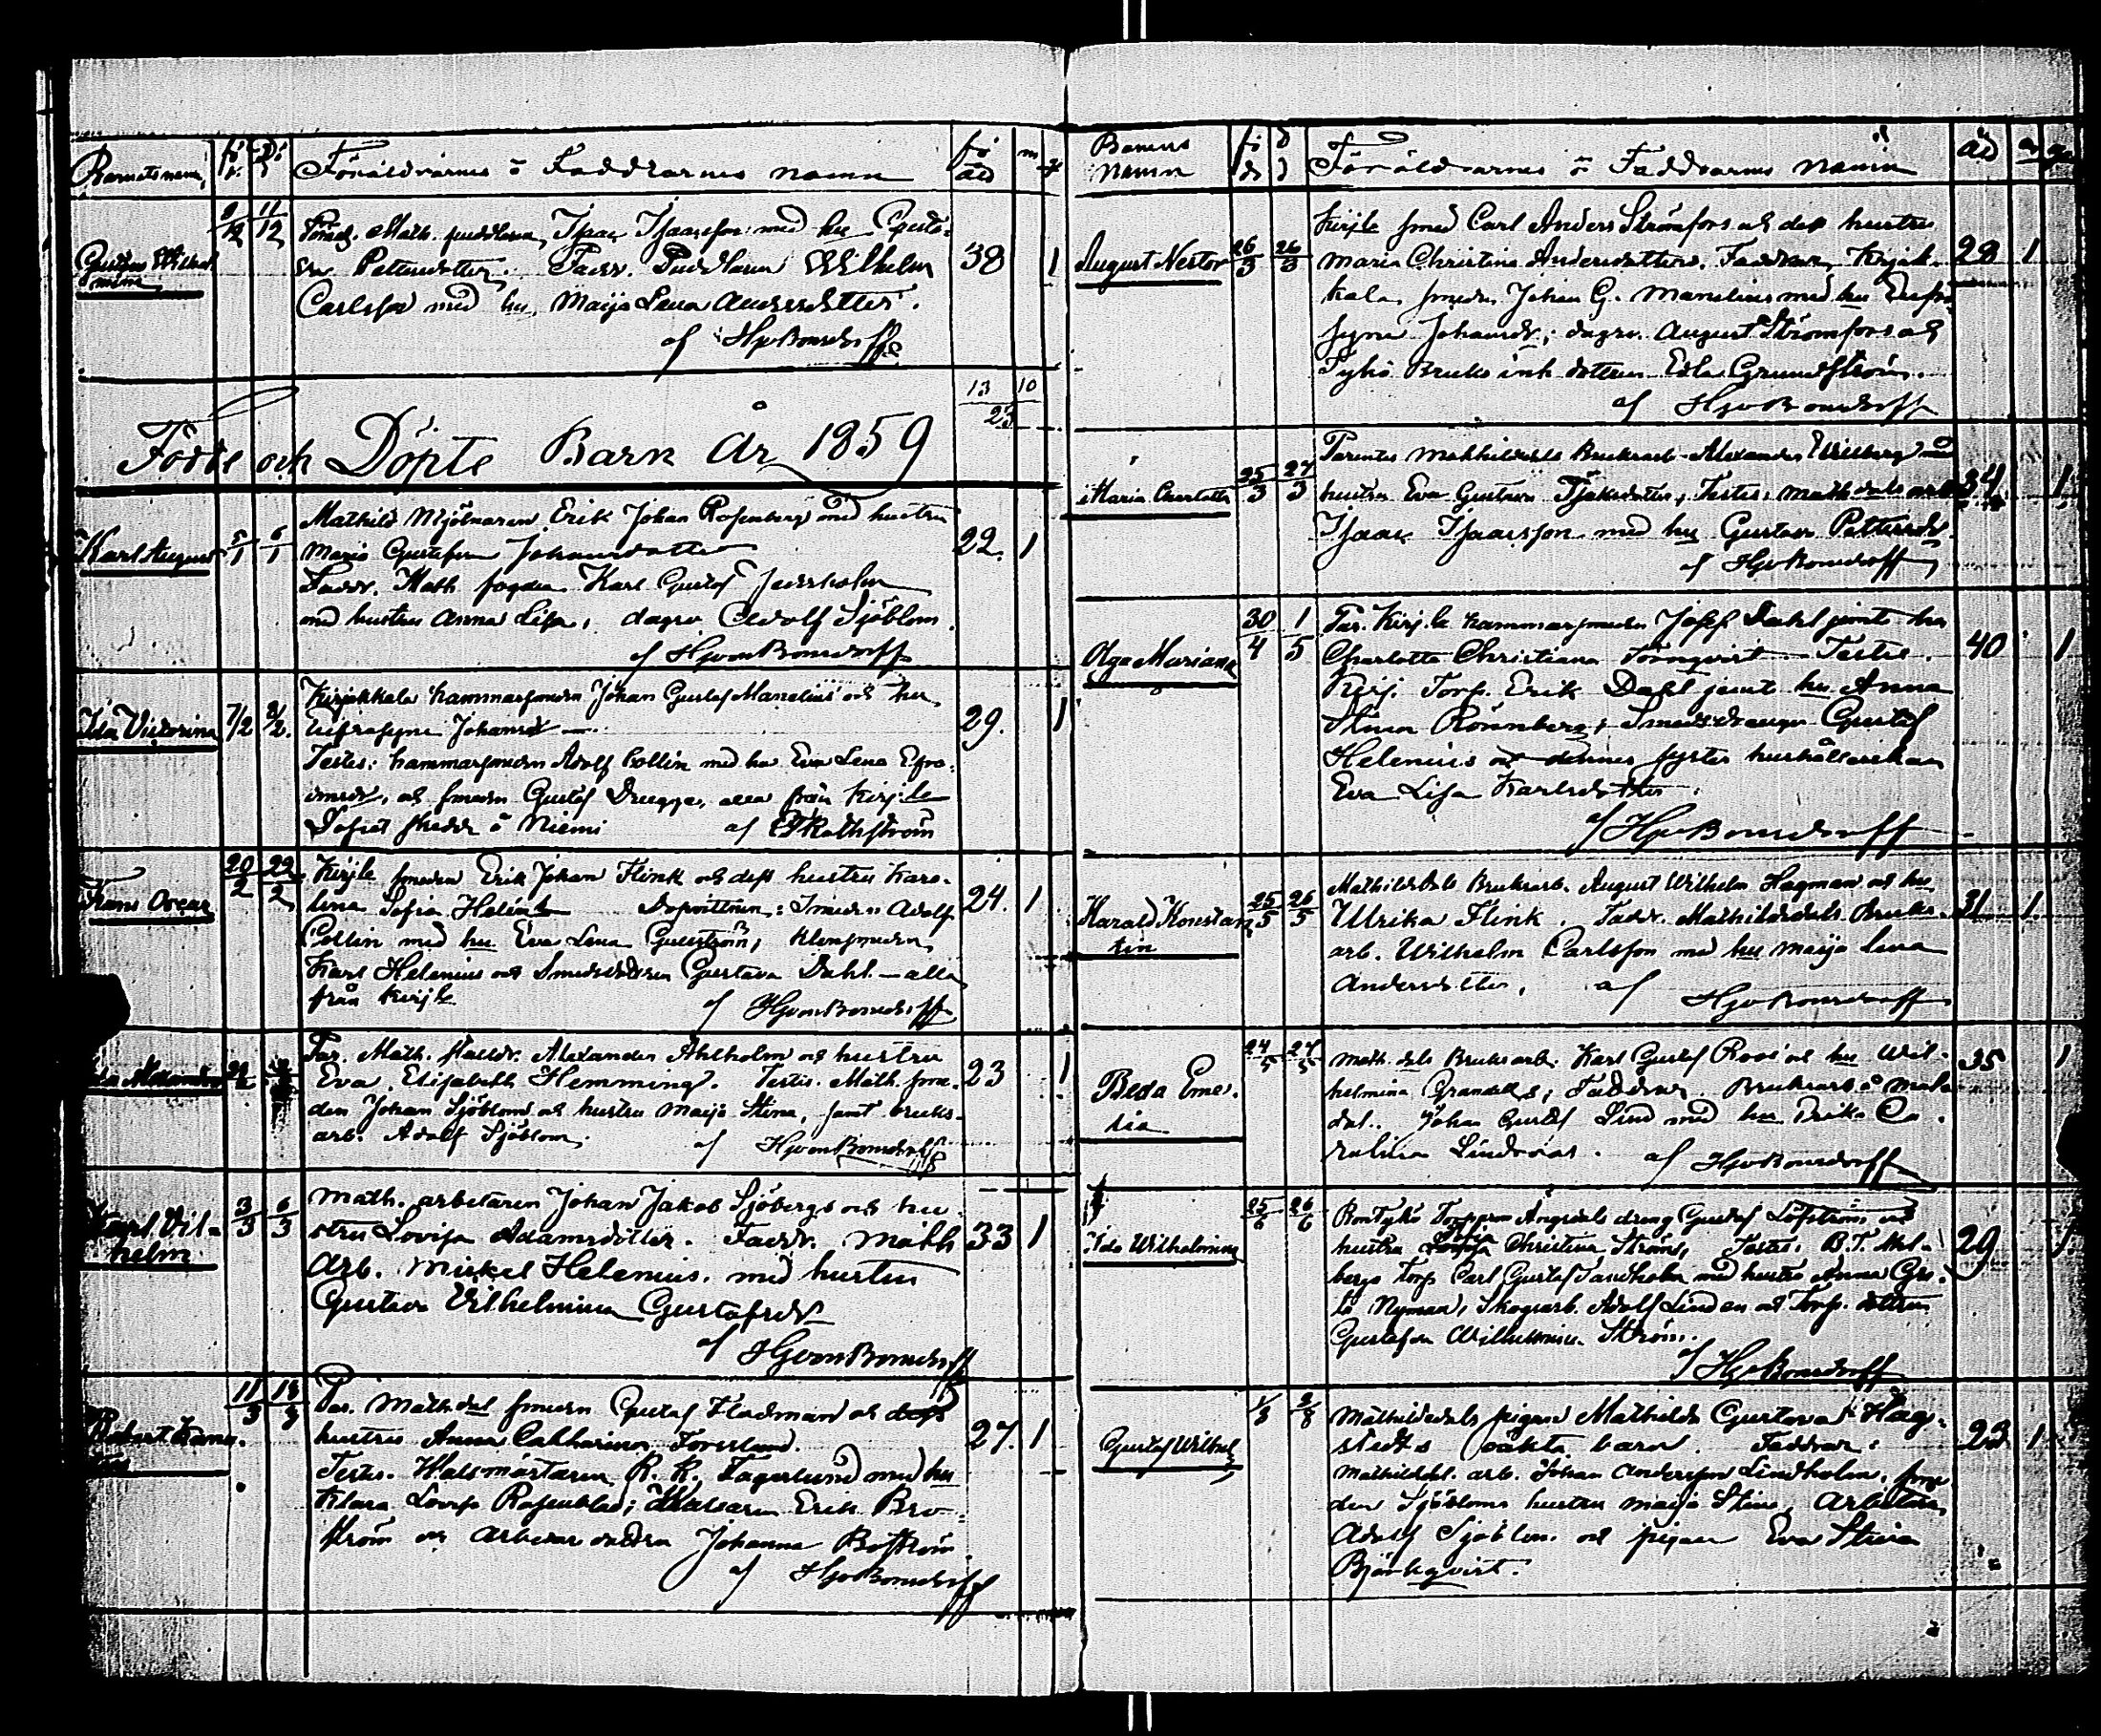 Barnets namn fö dö Föräldrarnes o Faddrarnes namn fö års m q
Gustava Wilhelmina 9/12 11/12 Föräld. Math. puddlaren Isaac Isaacsson med hu Gusta-
va Pettersdotter. Faddr. Puddlaren Wilhelm 38 1
Carlsson med hu Maija Lena Andersdotter.
af HjvBonsdorff
13 10
23
Födde och Döpte Barn År 1859
Karl August 5/1 6/1 Mathild Mjölnaren Erik Johan Rosenberg med hustru
Maria Gustafva Johansdotter 22. 1
Faddr. Math fogden Karl Gustof
med hustru Anna Lisa, dagsv Adolf Sjöblom.
af HjvonBonsdorff
Ida Victorina 7/2 8/2. Kirjakkala hammarsmeden Johan Gustaf Manelius och hu
Eufrosyne Johansd 29. 1
Testes: hammarsmeden Adolf Collin med hu Eva Lena Efra-
imsd, och smeden Gustaf Dregge, alla från Kirjla
Dopet skedde å Niemi af
Frans Oscar 20/2 22/2 Kirjla smeden Erik Johan Flink och dess hustru Karo-
lina Sofia Dopvittnen: Smeden Adolf 24. 1
Collin med hu Eva Lena klensmeden
Karl Helenius och Smedsdottren Gustava Dahl. — alla
från Kirjla af HjvonBonsdorff
Par. Math. Alexander Ahlholm och hustru
Eva Elisabeth Hemming. Testes. Math. sme- 23 1
den Johan Sjöblom och hustru Maija Stina, samt bruks-
arb. Adolf Sjöblom. af HjvonBonsdorff
Karl Vil- 3/3 6/3 Math. arbetaren Johan Jakob Sjöbergs och hu-
helm stru Lovisa Adamsdotter. Faddr. Math 33 1
Arb. Mickel Helenius. med hustru
Gustava Vilhelmina Gustafsd
af HjvonBonsdorff
Robert 11/3 13/3 Par. Mathdal smeden Gustaf Fladman och dess
hustru Anna Catharina 27. 1
Testes. R. R. Fagerlund med hu
Klara Lovisa Rosenblad; Erik Bro-
ström och Johanna Boström
af HjvBonsdorff
Barnens namn fö ds d Föräldrarnes o Faddrarnes namn ås m q
August Nestor 26/3 26/3 Kirjla smed Carl Anders Strömfors och dess hustru
Maria Christina Andersdotter. Faddrar, Kirjak- 28 1
kala, smeden Johan G. Manelius med hu Eufro-
syne Johansdr; dagsv. August Strömfors och
Tykö Bruks inh dottren Edla Grundström.
af HjvBonsdorff
Maria Charlotta 25/3 27/3 Parentes Mathildedals Bruksarb Alexander och
hustru Eva Gustava Testes: Mathdals arb 34 1
Isaac Isaacsson med hu Gustava Pettersd.
af HjvBonsdorff
Olga Mariana 30/4 1/5 Par. Kirjla hammarsmeden Josef Dahl jemte hu
Charlotta Christiana Törnqvist Testes. 40 1
Kirj. Torp. Erik Dahl jemt hu Anna
Stina Rönnberg; Smedsdrengen Gustaf
Helenius och dennes syster hushållerskan
Eva Lisa Karlsdotter.
af HjvBonsdorff
Harald Konstan- 25/5 26/5 Mathildedals Bruksarb. August Wilhelm Hagman och hu
tin Ulrika Flink. Faddr. Mathildedals Bruks- 31 1.
arb. Wilhelm Carlsson med hu Maija Lena
Andersdotter, af HjvBonsdorff
Beda Eme- 24/5 27/5 Math. dals Bruksarb. Karl Gustaf Roos och hu Wil- 35 1
lia helmina Faddrar Bruksarb å Math
dal. Johan Gustaf Lind med hu Ca-
rolina Lindroos. af HjvBonsdorff
Ida Wilhelmina 25/6 26/6 dreng Gustaf Löfström och
hustru Sofia Christina Ström, Testes. B. T. 29 1
bergs torp Carl Gustaf med hustru Anna Gre-
ta Nyman, Skogsarb. Adolf Linden och Torp. dottren
Gustafva Wilhelmina Ström.
af HjvBonsdorff
Gustaf Wilhel 1/8 2/8 Mathildedals pigan Mathilda Gustava Hag-
stedts oäkta barn. Faddrar: 23 1
Mathildedal. arb. Johan Andersson Lindholm, sme-
den Sjöbloms hustru Maija Stina, Arbetaren
Adolf Sjöblom och pigan Eva Stina
Björkqvist.